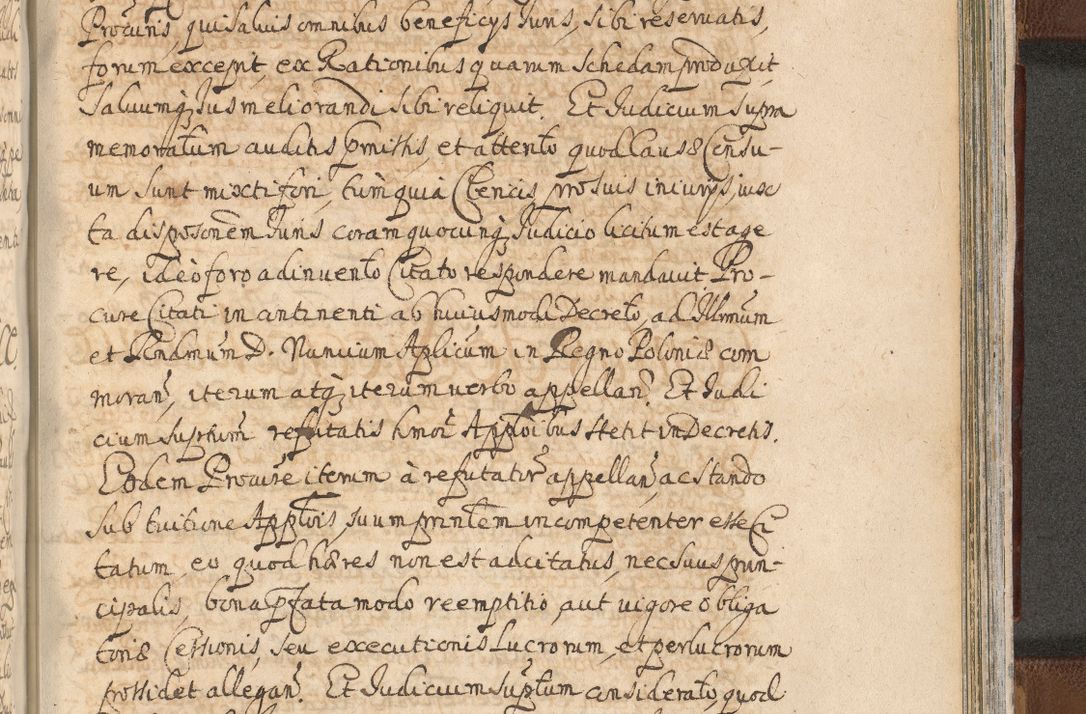 Procuris, qui saluis omnibus beneficys Juris, sibi reseruatis,
forum excepit, ex Rationibus quarum schedam produxit,
saluumq Jus meliorandi sibi reliquit. Et Judicium supra
memoratum auditis pmissis, et attento quod Causæ Censu-
um sunt mixti fori, tum quia Clericis, pro suis iniurys, iux
ta disposonem Juris coram quocunq Judicio licitum est age
re, ideo foro adinuento Citato respondere mandauit. Pro-
cure Citati in antinenti ab huiusmodi Decreto, ad Illmum
et Rndmum D. Nuncium Aplicum in Regno Poloniæ com
moran, iterum atq iterum verbo appellan. Et Judi
cium suptum refutatis hmoi Apploibus stetit in Decretis.
Eodem Procure iterum à refutatoe appellan, ac stando
sub tuitione Applois, suum prinlem incompetenter esse Ci
tatum, eo quod hæres non est adcitatus, nec suus prin-
cipalis, bona pfata modo reemptitio, aut uigore obliga
toriæ Cessionis, seu executionis Lucrorum, et perlucrorum
possidet allegan. Et Judicium suptum considerato, quod